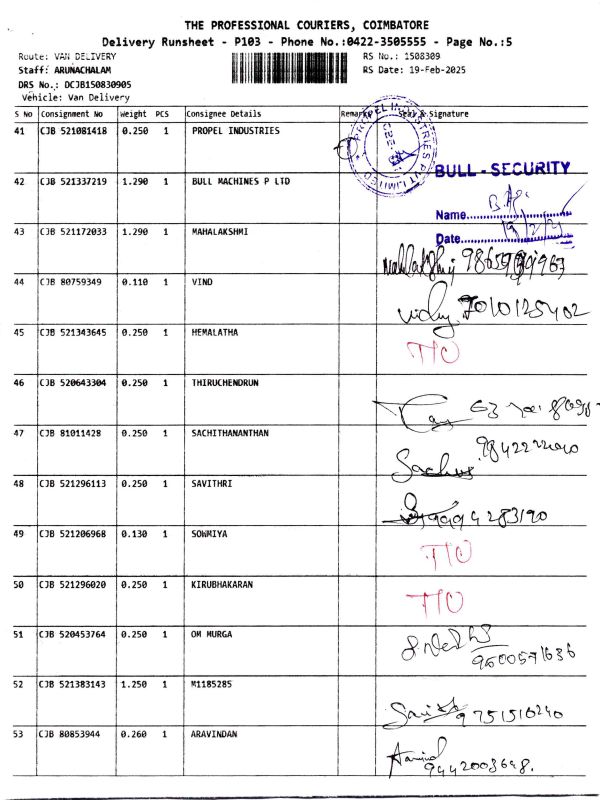 THE PROFESSIONAL COURIERS, COIMBATORE
Delivery Runsheet - P103 - Phone No.:0422-3505555 - Page No.:5
Route: VAN DELIVERY RS No.: 1508309
Staff: ARUNACHALAM RS Date: 19-Feb-2025
DRS No.: DCJB150830905
Vehicle: Van Delivery
S No Consignment No Weight PCS Consignee Details Remarks Seal & Signature
41 CJB 521081418 0.250 1 PROPEL INDUSTRIES
PROPEL INDUSTRIES PVT LIMITED
BULL - SECURITY
42 CJB 521337219 1.290 1 BULL MACHINES P LTD
Name
Date
43 CJB 521172033 1.290 1 MAHALAKSHMI
44 CJB 80759349 0.110 1 VIND
7010125402
45 CJB 521343645 0.250 1 HEMALATHA
T/O
46 CJB 520643304 0.250 1 THIRUCHENDRUN
47 CJB 81011428 0.250 1 SACHITHANANTHAN
48 CJB 521296113 0.250 1 SAVITHRI
9994283190
49 CJB 521206968 0.130 1 SOWMIYA
T/O
50 CJB 521296020 0.250 1 KIRUBHAKARAN
T/O
51 CJB 520453764 0.250 1 OM MURGA
9600571636
52 CJB 521383143 1.250 1 M1185285
9751516240
53 CJB 80853944 0.260 1 ARAVINDAN
9442003648.